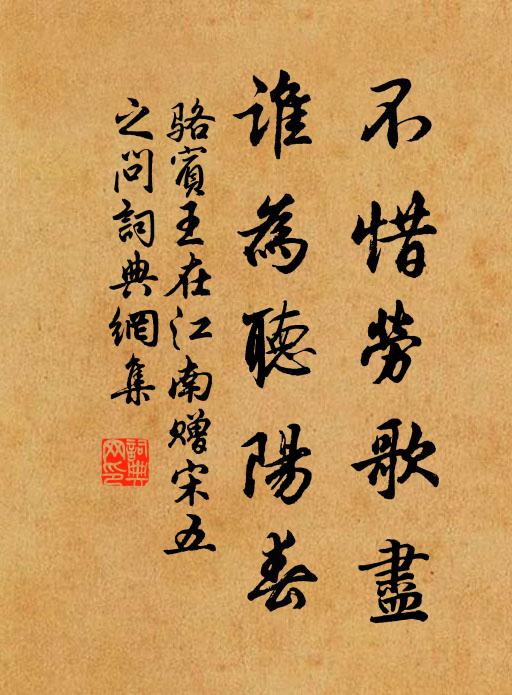 不惜勞歌盡
誰為聽陽春
駱賓王在江南贈宋五
之問詞典網集
詞典
网印